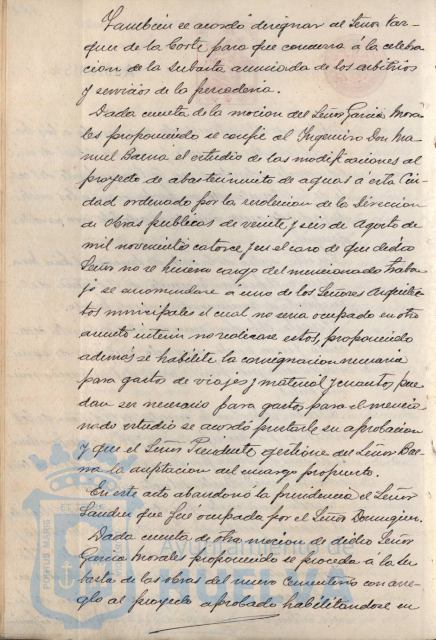 También se acordó designar al Señor Var-
gues de la Corte para que concurra á la celebra
cion de la subasta anunciada de los arbitrios
y servicios de la pescaderia.
Dada cuenta de la mocion del Señor Garcia Mora
les proponiendo se confie al Ingeniero Don Ma
nuel Barea el estudio de las modificaciones al
proyecto de abastecimiento de aguas á esta Ciu
dad ordenado por la resolucion de la Direccion
de Obras publicas de veinte y seis de Agosto de
mil novecientos catorce y en el caso de que dicho
Señor no se hiciera cargo del mencionado traba
jo se encomendare á uno de los Señores Arquitec
tos municipales el cual no seria ocupado en otro
asunto interin no realizare estos, proponiendo
además se habilite la consignacion necesaria
para gastos de viajes y material y cuantos pue
dan ser necesarios para gastos para el mencio
nado estudio se acordó prestarle su aprobacion
y que el Señor Presidente gestione del Señor Bar
ea la aceptacion del encargo propuesto.
En este acto abandonó la presidencia el Señor
que fué ocupada por el Señor Dominguez.
Dada cuenta de otra mocion de dicho Señor
Garcia Morales proponiendo se proceda á la su
basta de las obras del nuevo Cementerio con arre
glo al proyecto aprobado habilitandose en
PORTUS MARIS
Ayuntamiento de
HUELVA